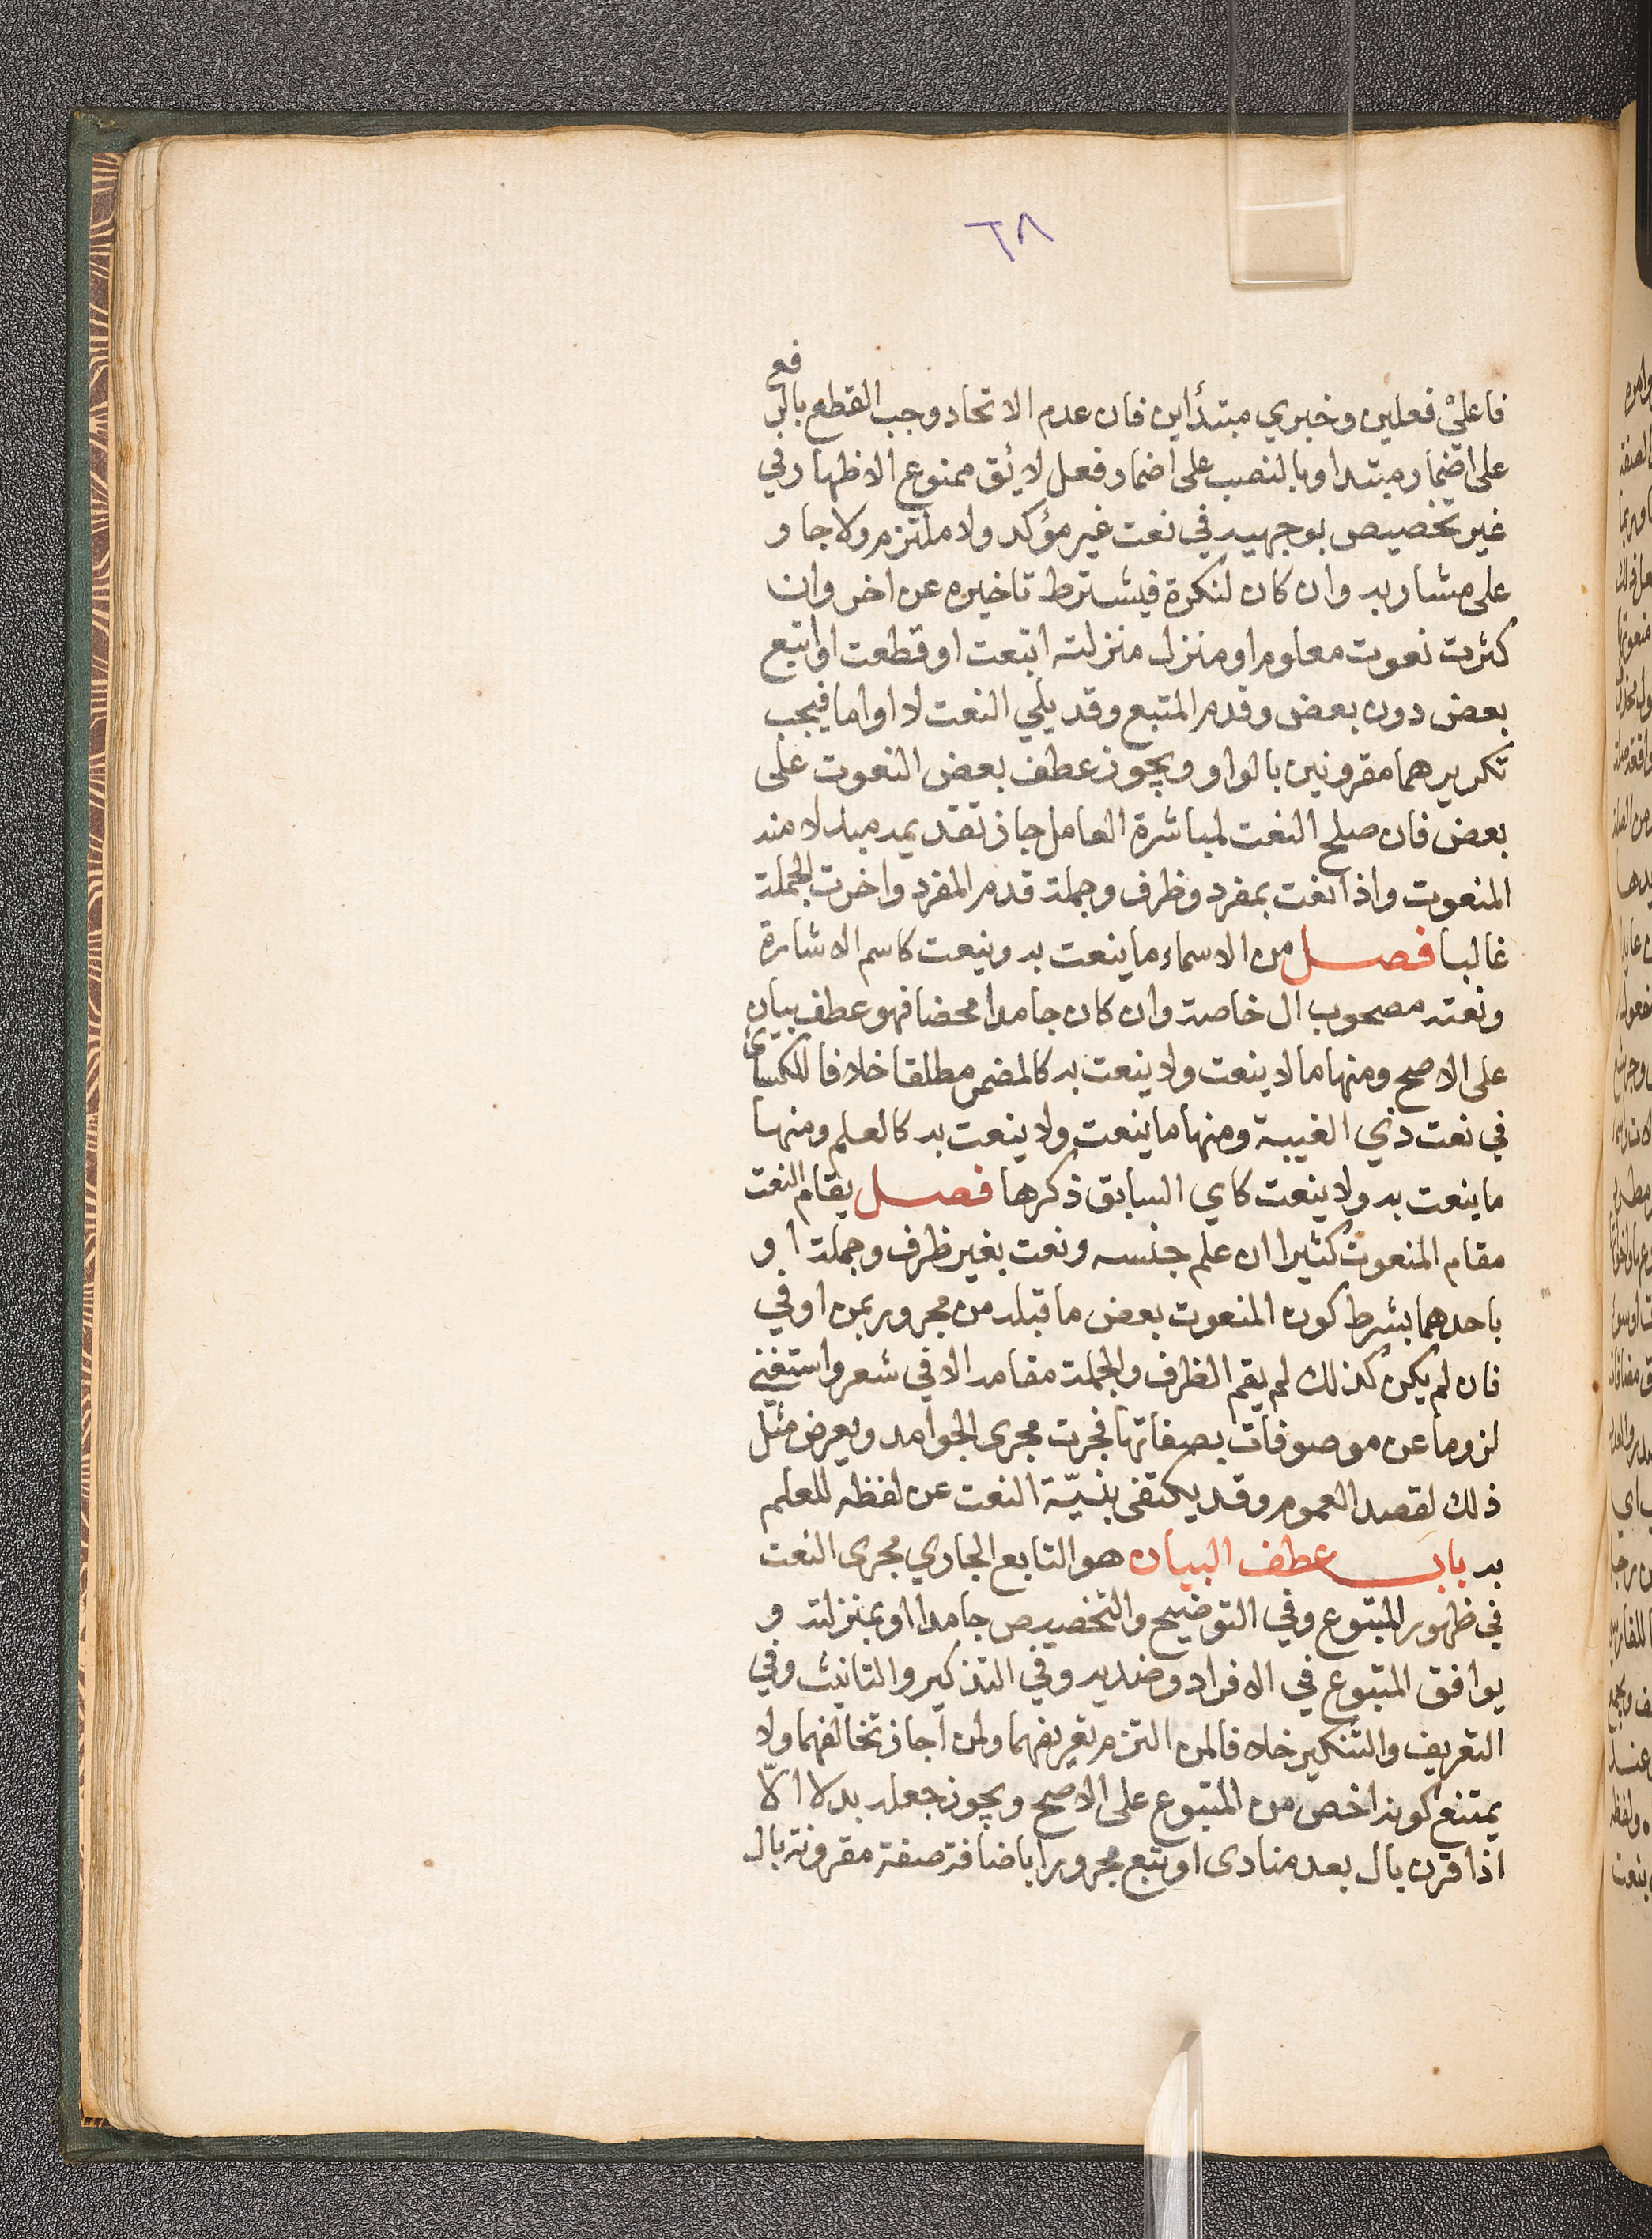 ٦٨
فاعليْ فعلين وخبري مبتدأين فان عدم الاتحاد وجب القطع بالرفع
على اضمار مبتدا وبالنصب على اضمار فعل لائق ممنوع الاظهار في
غير تخصيص بوجهيه في نعت غير مؤكد ولا ملتزم ولا جار
على مشار به وان كان لنكرة فيشترط تاخيره عن اخر وان
كثرت نعوت معلوم او منزل منزلته اتبعت او قطعت او اتبع
بعض دون بعض وقدم المتبع وقد يلي النعت لا او اما فيجب
تكريرهما مقرونين بالواو ويجوز عطف بعض النعوت على
بعض فان صلح النعت لمباشرة العامل جاز تقديمه مبدلا منه
المنعوت واذا نعت بمفرد وظرف وجملة قدم المفرد واخرت الجملة
غالبا فصل من الاسماء ما ينعت به وينعت كاسم الاشارة
ونعته مصحوب ال خاصة وان كان جامدا محضا فهو عطف بيان
على الاصح ومنها ما لا ينعت ولا ينعت به كالمضمر مطلقا خلافا للكسائي
في نعت ذي الغيبة ومنها ما ينعت ولا ينعت به كالعلم ومنها
ما ينعت به ولا ينعت كاي السابق ذكرها فصل يقام النعت
مقام المنعوت كثيرا ان علم جنسه ونعت بغير ظرف وجملة او
باحدهما بشرط كون المنعوت بعض ما قبله من مجرور بمن او في
فان لم يكن كذلك لم يقم الظرف والجملة مقامه الا في شعر واستغني
لزوما عن موصوفات بصفاتها فجرت مجرى الجوامد ويعرض مثل
ذلك لقصد العموم وقد يكتفى بنيّة النعت عن لفظه للعلم
به باب عطف البيان هو التابع الجاري مجرى النعت
في ظهور المتبوع وفي التوضيح والتخصيص جامدا او بمنزلته و
يوافق المتبوع في الافراد وضديه وفي التذكير والتانيث وفي
التعريف والتنكير خلافا لمن التزم تعريفهما ولمن اجاز تخالفهما ولا
يمتنع كونه اخص من المتبوع على الاصح ويجوز جعله بدلا الّا
اذا قرن بال بعد منادى او تبع مجرورا باضافة صفة مقرونة بال